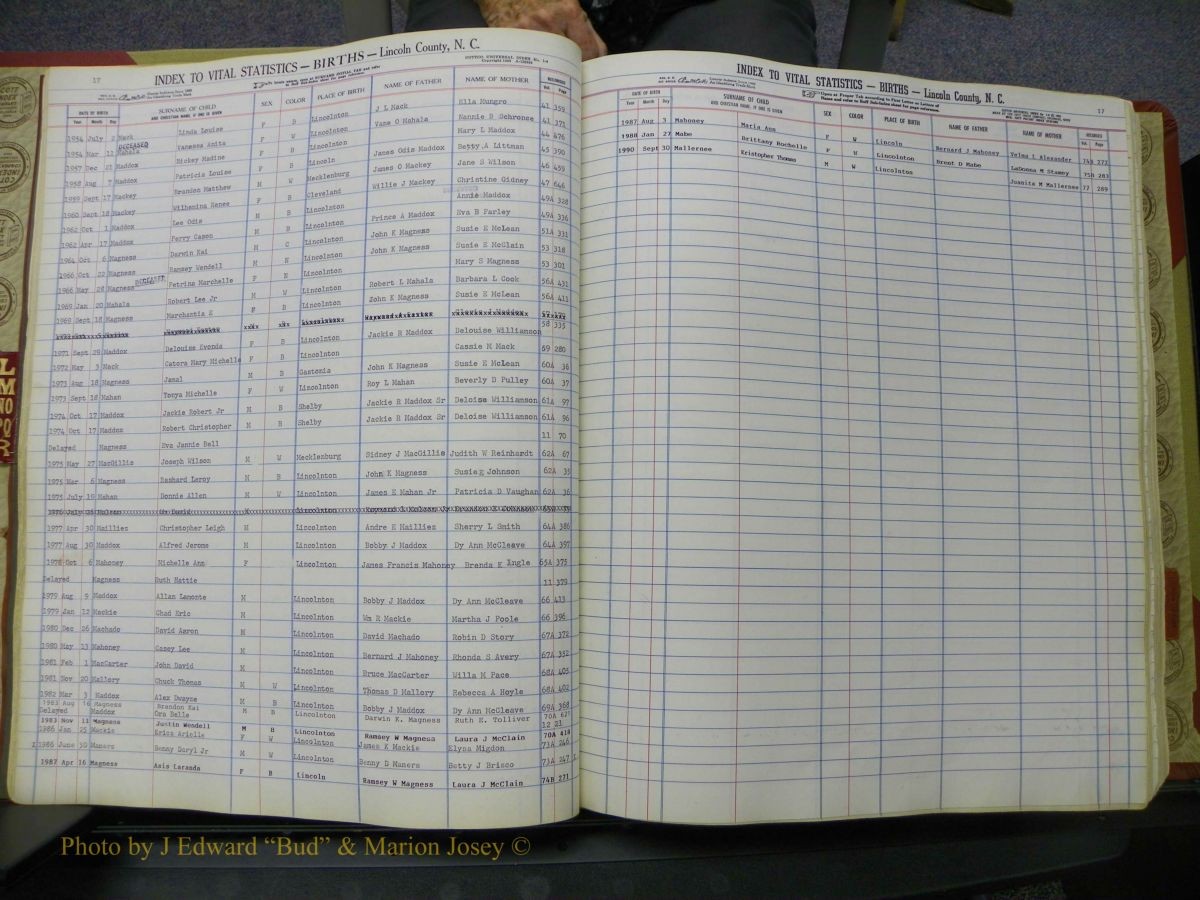 17
INDEX TO VITAL STATISTICS — BIRTHS — Lincoln County, N. C.
DATE OF BIRTH
Year Month Day
SURNAME OF CHILD
AND CHRISTIAN NAME, IF ONE IS GIVEN
SEX COLOR PLACE OF BIRTH NAME OF FATHER NAME OF MOTHER
1954 July 2 Mack Linda Louise F B Lincolnton J L Mack Ella Mungro 41 359
1954 Mar 12 Mahala DECEASED Vanessa Anita F W Lincolnton Vane O Mahala Nannie B Schronce 41 371
1957 Dec 21 Maddox Rickey Nadine F B Lincolnton Mary L Maddox 44 476
1958 Aug 7 Maddox Patricia Louise F B Lincoln James Odis Maddox Betty A Littman 45 390
1959 Sept 17 Mackey Brandon Matthew M W Mecklenburg James O Mackey Jane S Wilson 46 459
1960 Sept 18 Mackey Wilhemina Renee F B Cleveland Willie J Mackey Christine Gidney 47 646
1962 Oct 1 Maddox Lee Odis M B Lincolnton Annie Maddox 49A 328
1962 Apr 17 Maddox Perry Cason M B Lincolnton Prince A Maddox Eva B Farley 49A 336
1964 Oct 6 Magness Darwin Kai M C Lincolnton John K Magness Susie E McLean 51A 331
1966 Oct 22 Magness Ramsey Wendell M N Lincolnton John K Magness Susie E McClain 53 318
1966 May 28 Magness DECEASED Petrina Marchelle F N Lincolnton Mary S Magness 53 301
1969 Jan 20 Mahala Robert Lee Jr M W Lincolnton Robert L Mahala Barbara L Cook 56A 431
1969 Sept 18 Magness Marchantia Z F B Lincolnton John K Magness Susie E McLean 56A 411
1971 Sept 29 Maddox Delouise Evonda F B Lincolnton Jackie R Maddox Delouise Williamson 58 335
1972 May 3 Mack Catora Mary Michelle F B Lincolnton Cassie M Mack 59 280
1973 Aug 18 Magness Jamal M B Gastonia John K Magness Susie E McLean 60A 36
1973 Sept 18 Mahan Tonya Michelle F W Lincolnton Roy L Mahan Beverly D Pulley 60A 37
1974 Oct 17 Maddox Jackie Robert Jr M B Shelby Jackie R Maddox Sr Deloise Williamson 61A 97
1974 Oct 17 Maddox Robert Christopher M B Shelby Jackie R Maddox Sr Deloise Williamson 61A 96
Delayed Magness Eva Jannie Bell 11 70
1975 May 27 MacGillis Joseph Wilson M W Mecklenburg Sidney J MacGillis Judith W Reinhardt 62A 67
1975 Mar 6 Magness Rashard Leroy M B Lincolnton John K Magness Susie E Johnson 62A 35
1975 July 19 Mahan Donnie Allen M W Lincolnton James E Mahan Jr Patricia D Vaughan 62A 36
1977 Apr 30 Maillies Christopher Leigh M Lincolnton Andre E Maillies Sherry L Smith 64A 386
1977 Aug 30 Maddox Alfred Jerome M Lincolnton Bobby J Maddox Dy Ann McCleave 64A 397
1978 Oct 6 Mahoney Michelle Ann F Lincolnton James Francis Mahoney Brenda K Angle 65A 375
Delayed Magness Ruth Hattie 11 379
1979 Aug 9 Maddox Allan Lamonte M Lincolnton Bobby J Maddox Dy Ann McCleave 66 413
1979 Jan 12 Mackie Chad Eric M Lincolnton Wm R Mackie Martha J Poole 66 396
1980 Dec 26 Machado David Aaron M Lincolnton David Machado Robin D Story 67A 372
1980 May 13 Mahoney Casey Lee M Lincolnton Bernard J Mahoney Rhonda S Avery 67A 352
1981 Feb 1 MacCarter John David M Lincolnton Bruce MacCarter Willa M Pace 68A 405
1981 Nov 20 Mallory Chuck Thomas M W Lincolnton Thomas D Mallory Rebecca A Hoyle 68A 402
1982 Mar 3 Maddox Alex Dwayne M B Lincolnton Bobby J Maddox Dy Ann McCleave 69A 368
1983 Aug 16 Magness Brandon Kai M B Lincolnton Darwin K. Magness Ruth E. Tolliver 70A
Delayed Maddox Ora Belle 12 21
1983 Nov 11 Magness Justin Wendell M B Lincolnton Ramsey W Magness Laura J McClain 70A 414
1986 Jan 25 Mackie Erica Arielle F W Lincolnton James K Mackie Elysa Migdon 73A 246
1986 June 30 Maners Benny Daryl Jr M W Lincolnton Benny D Maners Betty J Brisco 73A 247
1987 Apr 16 Magness Asia Laranda F B Lincoln Ramsey W Magness Laura J McClain 74B 271
INDEX TO VITAL STATISTICS — BIRTHS — Lincoln County, N. C.
17
DATE OF BIRTH
Year Month Day
SURNAME OF CHILD
AND CHRISTIAN NAME, IF ONE IS GIVEN
SEX COLOR PLACE OF BIRTH NAME OF FATHER NAME OF MOTHER
1987 Aug 3 Mahoney Maria Ann F W Lincoln Bernard J Mahoney Velma L Alexander 74B 277
1988 Jan 27 Mabe Brittany Rochelle F W Lincolnton Brent D Mabe LaDonna M Stamey 75B 283
1990 Sept 30 Mallernee Kristopher Thomas M W Lincolnton Juanita M Mallernee 77 289
Photo by J Edward “Bud” & Marion Josey ©